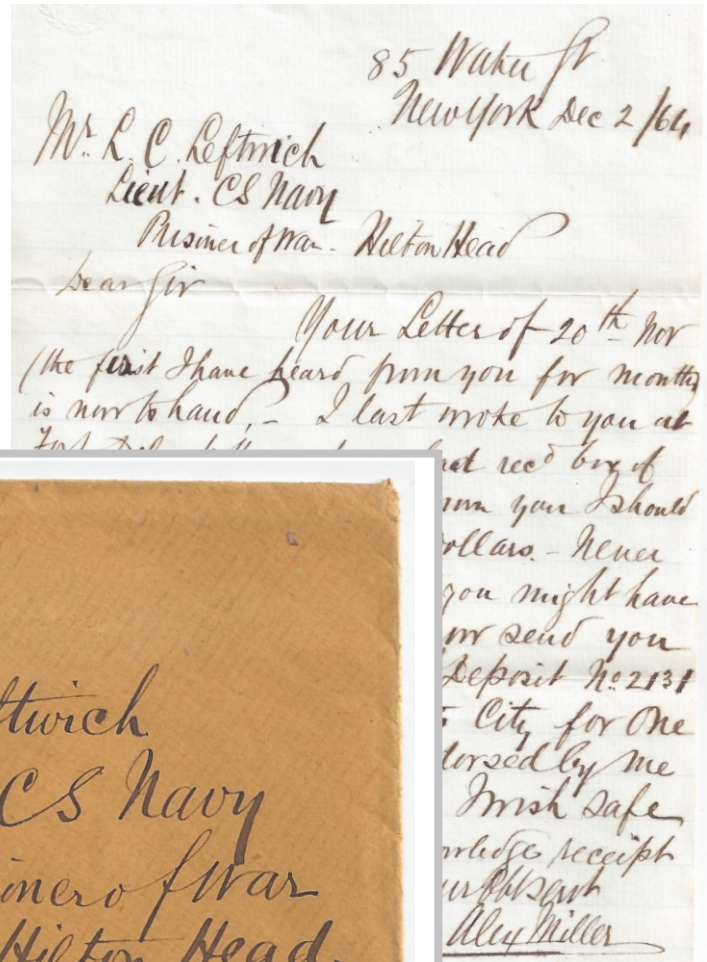 85 Water St
New York Dec 2/64
Mr. L. C. Leftwich
Lieut. CS Navy
Prisiner of War - Hilton Head
Dear Sir
Your Letter of 20th Nov
(the first I have heard from you for months
is now to hand, - I last wrote to you at
Fort
recd box of
you I should
Dollars. - Never
you might have
send you
Deposit No 2131
City for One
by me
I wish safe
receipt
Alex Miller
twich
CS Navy
of War
Hilton Head.